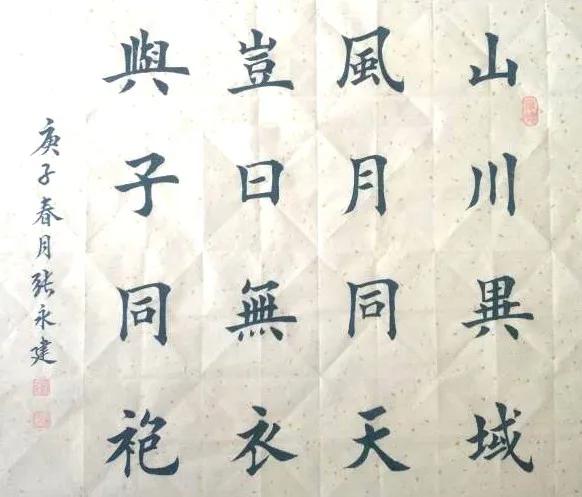 山川異域
風月同天
豈曰無衣
與子同袍
庚子春月張永建